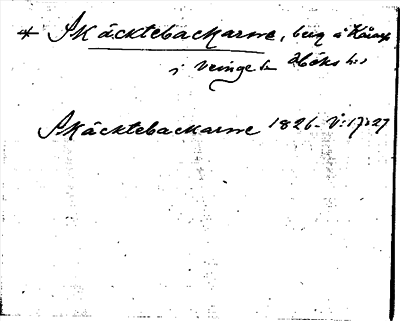 * Skäcktebackarne, berg å
i Veinge sn Höks hd
Skäcktebackarne 1826 - V:17:27